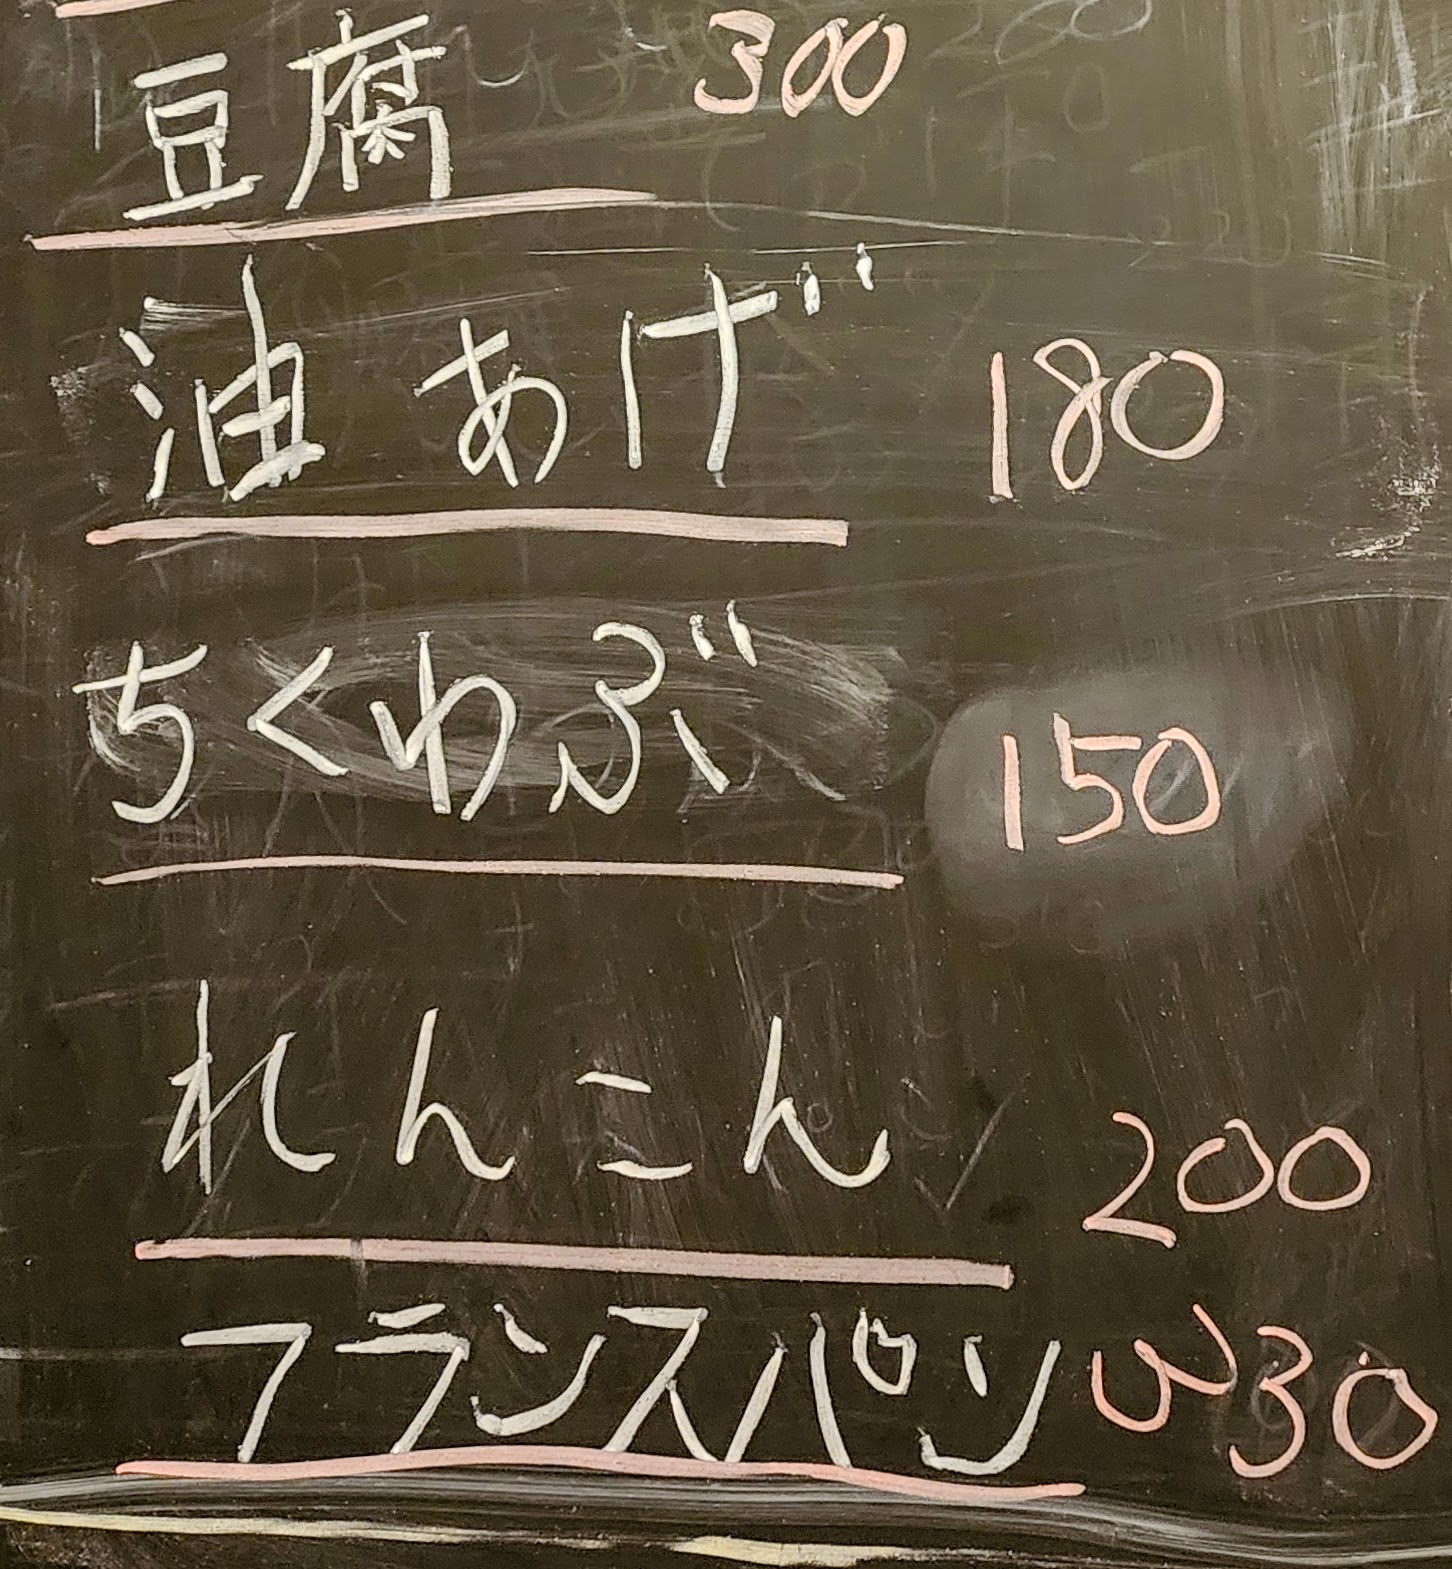 豆腐 300
油あげ 180
ちくわぶ 150
れんこん 200
フランスパン